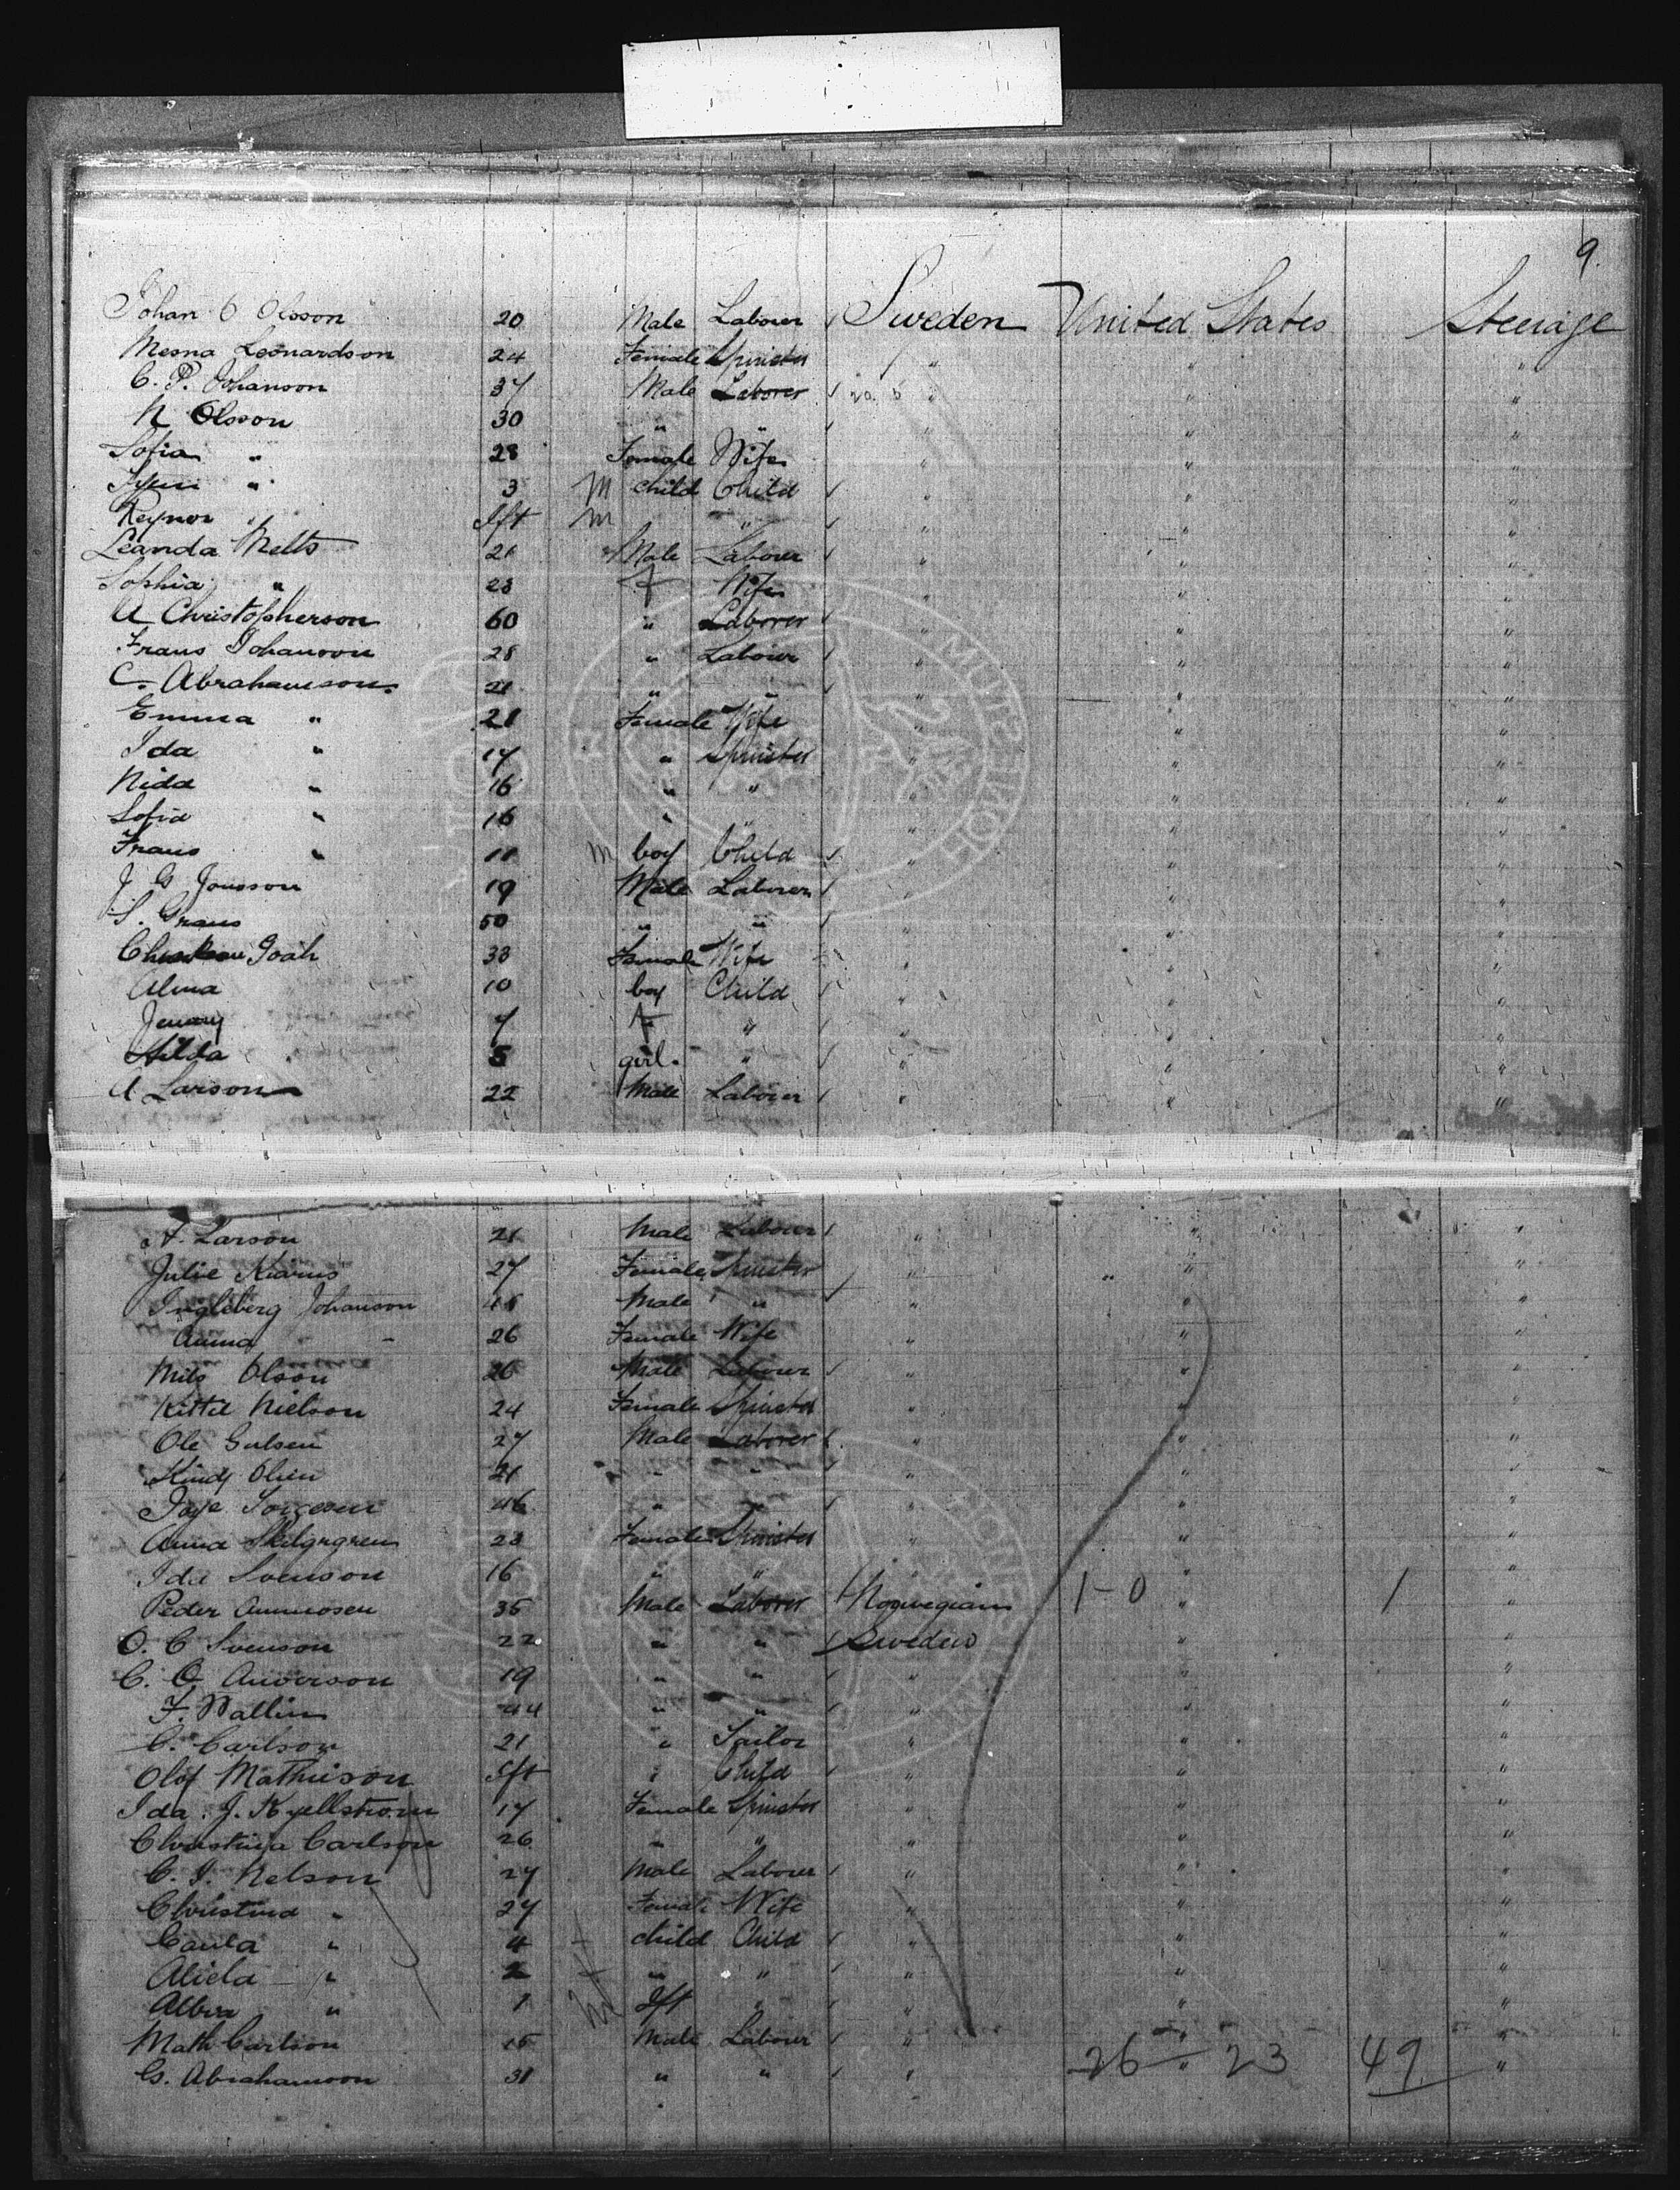 9.
Johan C Olsson 20 Male Laborer Sweden United States Steerage
Mesna Leonardson 24 Female Spinster " " "
C. P. Johanson 37 Male Laborer " " "
N Olsson 30 " " " " "
Sofia " 28 Female Wife " " "
" 3 M child Child " " "
Reynor " Ift M " " " "
Leanda Melts 21 Male Laborer " " "
Sophia " 28 f Wife " " "
A Christopherson 60 " Laborer " " "
Frans Johanson 28 " Laborer " " "
C. Abrahamson 21 " " " " "
Emma " 21 Female Wife " " "
Ida " 17 " Spinster " " "
Hida " 16 " " " " "
Sofia " 16 " " " " "
Frans " 11 m boy Child " " "
J G Jonsson 19 Male Laborer " " "
S. Grans 50 " " " " "
Goah 33 Female Wife " " "
Alma 10 boy Child " " "
Jenny 7 f " " " "
Hilda 5 girl " " " "
A Larson 22 Male Laborer " " "
A. Larson 21 Male Laborer " " "
Julie 27 Female Spinster " " "
Ingleberg Johanson 45 Male " " " "
Anna " 26 Female Wife " " "
Nils Olson 26 Male Laborer " " "
Kittil Nielson 24 Female Spinster " " "
Ole Gulsen 27 Male Laborer " " "
Olsen 21 " " " " "
46 " " " " "
Anna 23 Female Spinster " " "
Ida Svenson 16 " " " " "
Peder Ammosen 35 Male Laborer Norwegian 1-0 " 1 "
O. C Svenson 22 " " Sweden " "
C. O Anderson 19 " " " " "
F. Wallin 44 " " " " "
C. Carlson 21 " Tailor " " "
Olof Mathieson Ift " Child " " "
Ida J. Kyellstrom 17 Female Spinster " " "
Christina Carlson 26 " " " " "
C. J. Nelson 27 Male Laborer " " "
Christina " 27 Female Wife " " "
Carila " 4 child Child " " "
Alida " 2 " " " " "
Albin " 1 M Ift " " " "
Math Carlson 15 Male Laborer " " "
G. Abrahamson 31 " " " 26 " 23 49 "